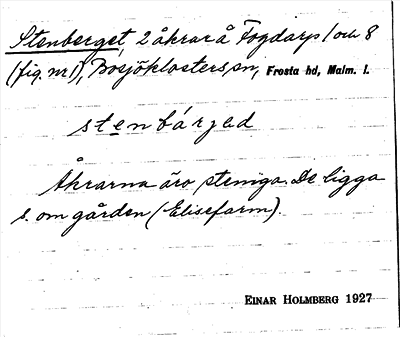 Stenberget, 2 åkrar å Fogdarp 1 och 8
(fig. nr 1), Bosjöklosters sn, Frosta hd, Malm. l.
stenbárʒed
Åkrarna äro steniga. De ligga
s. om gården (Elisefarm).
EINAR HOLMBERG 1927